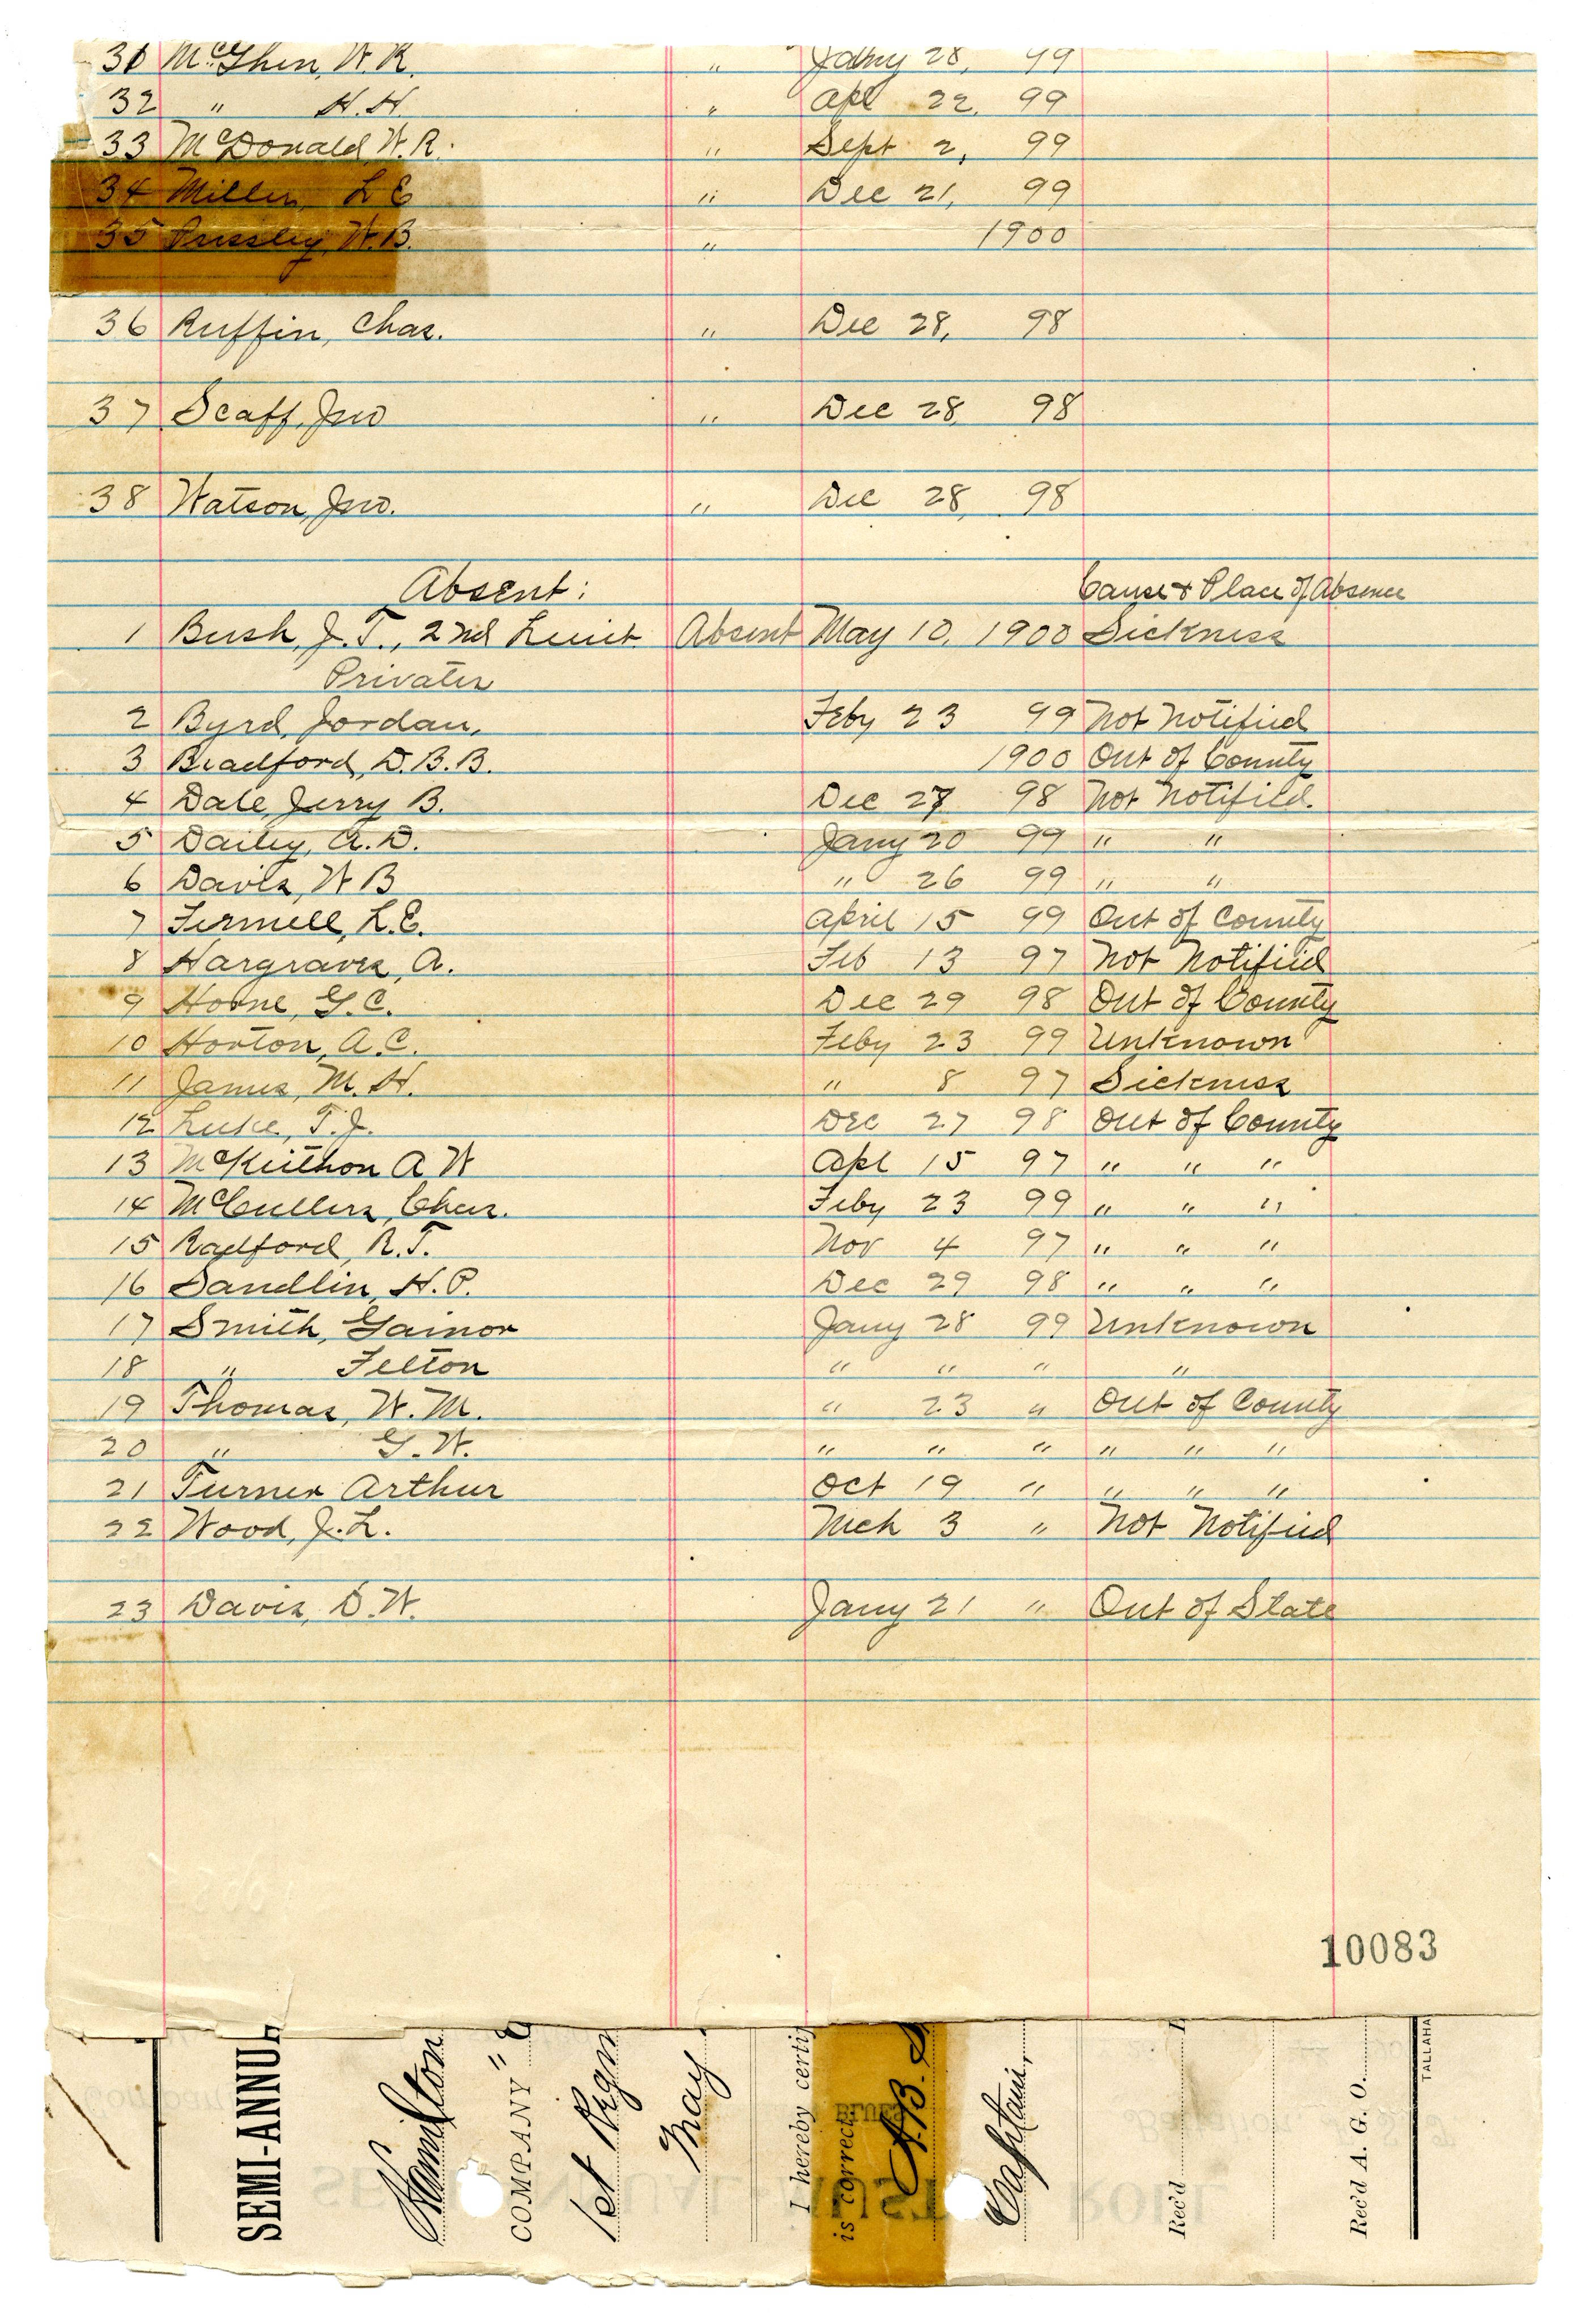 31 McGhin, W. R. " Jany 28, 99
32 " H. H. " Apl 22, 99
33 McDonald, W. R. " Sept 2, 99
34 Miller, L E " Dec 21, 99
35 Pressley, W. B. " 1900
36 Ruffin, Chas. " Dec 28, 98
37 Scaff, Jno " Dec 28, 98
38 Watson, Jno. " Dec 28, 98
Absent: Cause & Place of Absence
1 Bush, J. T., 2nd Lieut. Absent May 10, 1900 Sickness
Privates
2 Byrd, Jordan, Feby 23 99 Not Notified
3 Bradford, D. B. B. 1900 Out of County
4 Dale, Jerry B. Dec 27 98 Not Notified.
5 Dailey, A. D. Jany 20 99 " "
6 Davis, W B " 26 99 " "
7 Fennell, L. E. April 15 99 Out of County
8 Hargraves, A. Feb 13 97 Not Notified
9 Horne, G. C. Dec 29 98 Out of County
10 Horton, A. C. Feby 23 99 Unknown
11 James, M. H. " 8 97 Sickness
12 Luke, T. J. Dec 27 98 Out of County
13 McKeithon A W Apl 15 97 " " "
14 McCullers, Chas. Feby 23 99 " " "
15 Radford, R. T. Nov 4 97 " " "
16 Sandlin, H. P. Dec 29 98 " " "
17 Smith, Gainor Jany 28 99 Unknown
18 " Felton " " " "
19 Thomas, W. M. " 23 " Out of County
20 " G. W. " " " " " "
21 Turner Arthur Oct 19 " " " "
22 Wood, J. L. Mch 3 " Not Notified
23 Davis, D. W. Jany 21 " Out of State
10083
SEMI-ANNUA
Hamilton
COMPANY "
1st Regm
May
I hereby certif
is correct.
A. B. S
Captain,
Rec'd
Rec'd A. G. O.
TALLAHA